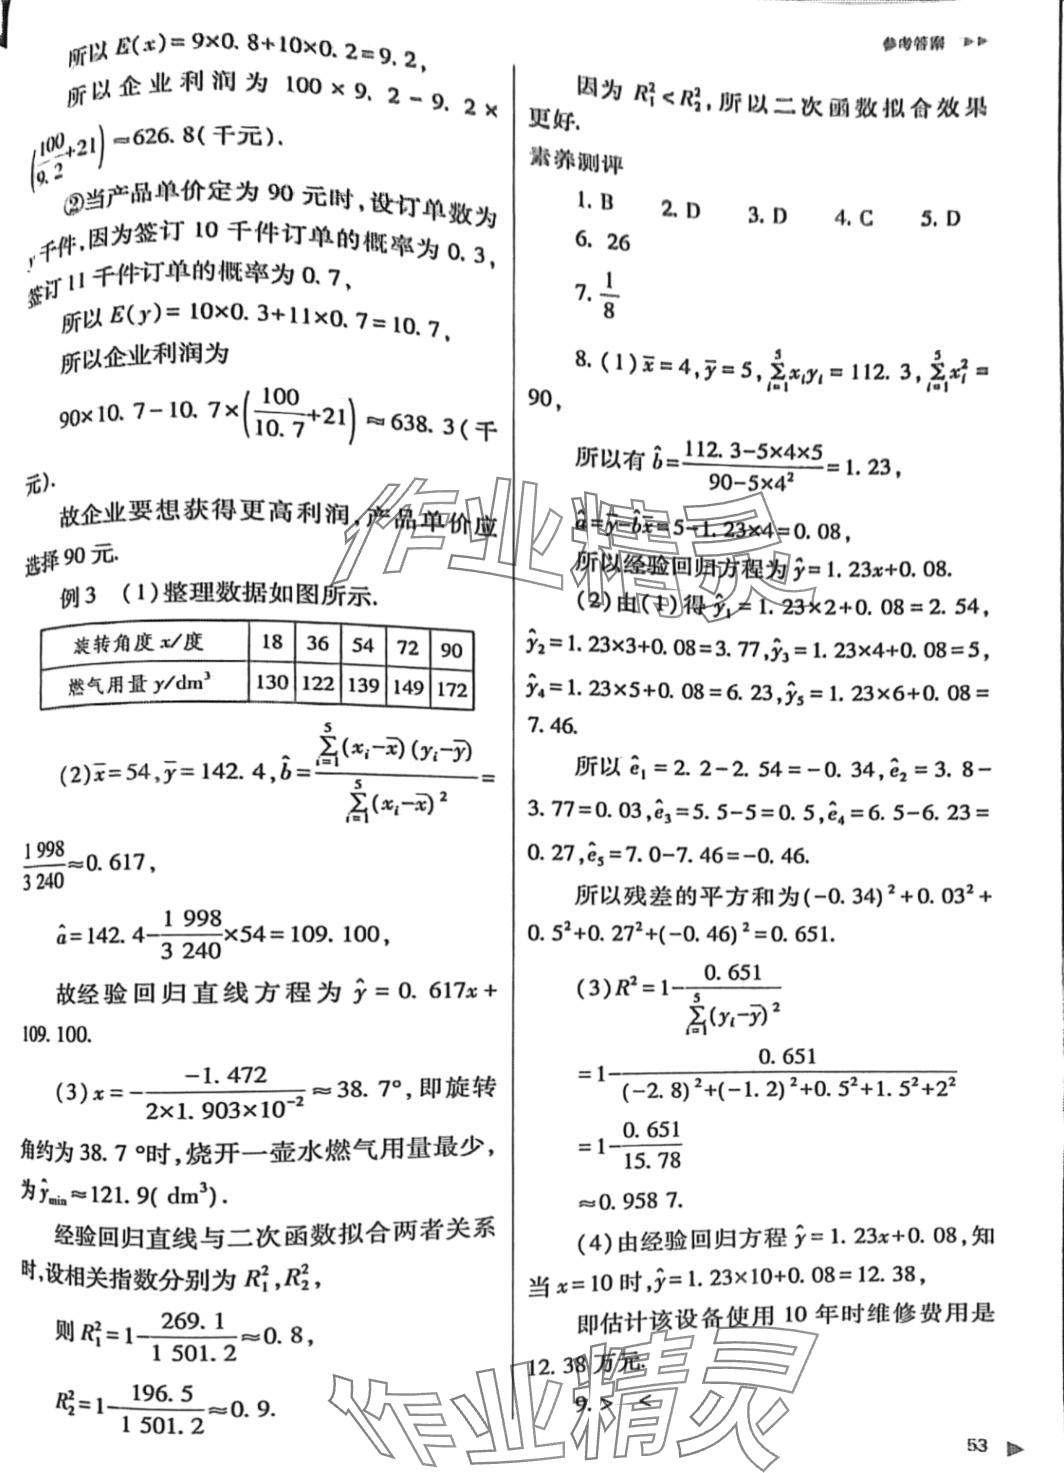 参考答案
所以 E(x)=9×0.8+10×0.2=9.2,
所以企业利润为 100×9.2-9.2×
(100/9.2+21)≈626.8(千元).
②当产品单价定为 90 元时,设订单数为
y 千件,因为签订 10 千件订单的概率为 0.3,
签订 11 千件订单的概率为 0.7,
所以 E(y)=10×0.3+11×0.7=10.7,
所以企业利润为
90×10.7-10.7×(100/10.7+21)≈638.3(千
元).
故企业要想获得更高利润,产品单价应
选择 90 元.
例 3 (1)整理数据如图所示.
旋转角度 x/度 18 36 54 72 90
燃气用量 y/dm³ 130 122 139 149 172
(2)x̄=54,ȳ=142.4,b̂=∑_{i=1}^{5}(x_i-x̄)(y_i-ȳ)/∑_{i=1}^{5}(x_i-x̄)²=
1 998/3 240≈0.617,
â=142.4-1 998/3 240×54=109.100,
故经验回归直线方程为 ŷ=0.617x+
109.100.
(3)x=-(-1.472)/(2×1.903×10⁻²)≈38.7°,即旋转
角约为 38.7 °时,烧开一壶水燃气用量最少,
为 ŷ_min≈121.9( dm³).
经验回归直线与二次函数拟合两者关系
时,设相关指数分别为 R₁²,R₂²,
则 R₁²=1-269.1/1 501.2≈0.8,
R₂²=1-196.5/1 501.2≈0.9.
因为 R₁²<R₂²,所以二次函数拟合效果
更好.
素养测评
1. B 2. D 3. D 4. C 5. D
6. 26
7. 1/8
8. (1)x̄=4,ȳ=5,∑_{i=1}^{5}x_iy_i=112.3,∑_{i=1}^{5}x_i²=
90,
所以有 b̂=(112.3-5×4×5)/(90-5×4²)=1.23,
â=ȳ-b̂x̄=5-1.23×4=0.08,
所以经验回归方程为 ŷ=1.23x+0.08.
(2)由(1)得 ŷ₁=1.23×2+0.08=2.54,
ŷ₂=1.23×3+0.08=3.77,ŷ₃=1.23×4+0.08=5,
ŷ₄=1.23×5+0.08=6.23,ŷ₅=1.23×6+0.08=
7.46.
所以 ê₁=2.2-2.54=-0.34,ê₂=3.8-
3.77=0.03,ê₃=5.5-5=0.5,ê₄=6.5-6.23=
0.27,ê₅=7.0-7.46=-0.46.
所以残差的平方和为(-0.34)²+0.03²+
0.5²+0.27²+(-0.46)²=0.651.
(3)R²=1-0.651/∑_{i=1}^{5}(y_i-ȳ)²
=1-0.651/((-2.8)²+(-1.2)²+0.5²+1.5²+2²)
=1-0.651/15.78
≈0.958 7.
(4)由经验回归方程 ŷ=1.23x+0.08,知
当 x=10 时,ŷ=1.23×10+0.08=12.38,
即估计该设备使用 10 年时维修费用是
12.38 万元.
9. > <
53
作业精灵
作业精灵